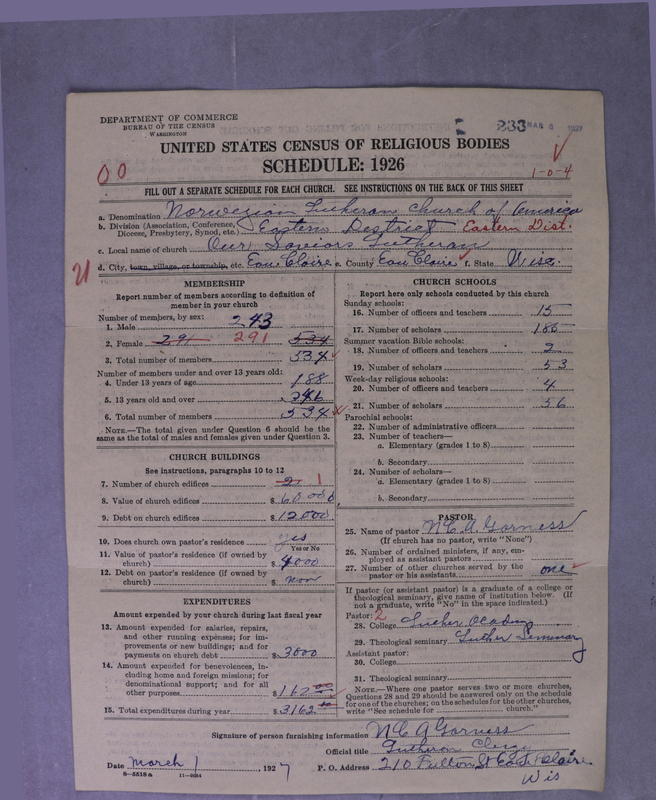 DEPARTMENT OF COMMERCE
BUREAU OF THE CENSUS
WASHINGTON
233 MAR 6 1927
UNITED STATES CENSUS OF RELIGIOUS BODIES
SCHEDULE: 1926
00
1-0-4
FILL OUT A SEPARATE SCHEDULE FOR EACH CHURCH. SEE INSTRUCTIONS ON THE BACK OF THIS SHEET
a. Denomination Norwegian Lutheran Church of America
b. Division (Association, Conference, Diocese, Presbytery, Synod, etc.) Eastern District Eastern Dist.
c. Local name of church Our Saviors Lutheran
d. City, town, village, or township, etc. Eau Claire e. County Eau Claire f. State Wisc.
MEMBERSHIP
Report number of members according to definition of
member in your church
Number of members, by sex:
1. Male 243
2. Female 291 291 534
3. Total number of members 534
Number of members under and over 13 years old:
4. Under 13 years of age 188
5. 13 years old and over 346
6. Total number of members 534
NOTE.—The total given under Question 6 should be the
same as the total of males and females given under Question 3.
CHURCH BUILDINGS
See instructions, paragraphs 10 to 12
7. Number of church edifices 2 1
8. Value of church edifices $ 60000
9. Debt on church edifices $ 12000
10. Does church own pastor's residence yes
Yes or No
11. Value of pastor's residence (if owned by
church) $ 4000
12. Debt on pastor's residence (if owned by
church) $ non
EXPENDITURES
Amount expended by your church during last fiscal year
13. Amount expended for salaries, repairs,
and other running expenses; for im-
provements or new buildings; and for
payments on church debt $ 3000
14. Amount expended for benevolences, in-
cluding home and foreign missions; for
denominational support; and for all
other purposes $ 162 00
15. Total expenditures during year $ 3162 00
CHURCH SCHOOLS
Report here only schools conducted by this church
Sunday schools:
16. Number of officers and teachers 15
17. Number of scholars 185
Summer vacation Bible schools:
18. Number of officers and teachers 2
19. Number of scholars 53
Week-day religious schools:
20. Number of officers and teachers 4
21. Number of scholars 56
Parochial schools:
22. Number of administrative officers
23. Number of teachers—
a. Elementary (grades 1 to 8)
b. Secondary
24. Number of scholars—
a. Elementary (grades 1 to 8)
b. Secondary
PASTOR
25. Name of pastor N C A Garness
(If church has no pastor, write "None")
26. Number of ordained ministers, if any, em-
ployed as assistant pastors
27. Number of other churches served by the
pastor or his assistants one
If pastor (or assistant pastor) is a graduate of a college or
theological seminary, give name of institution below. (If
not a graduate, write "No" in the space indicated.)
Pastor: 2
28. College Luther Academy
29. Theological seminary Luther Seminary
Assistant pastor:
30. College
31. Theological seminary
NOTE.—Where one pastor serves two or more churches,
Questions 28 and 29 should be answered only on the schedule
for one of the churches; on the schedules for the other churches,
write "See schedule for church."
Signature of person furnishing information N C A Garness
Official title Lutheran Clergy
Date March 1, 1927 P. O. Address 210 Fulton St Eau Claire
8-5518a 11-9034 Wis